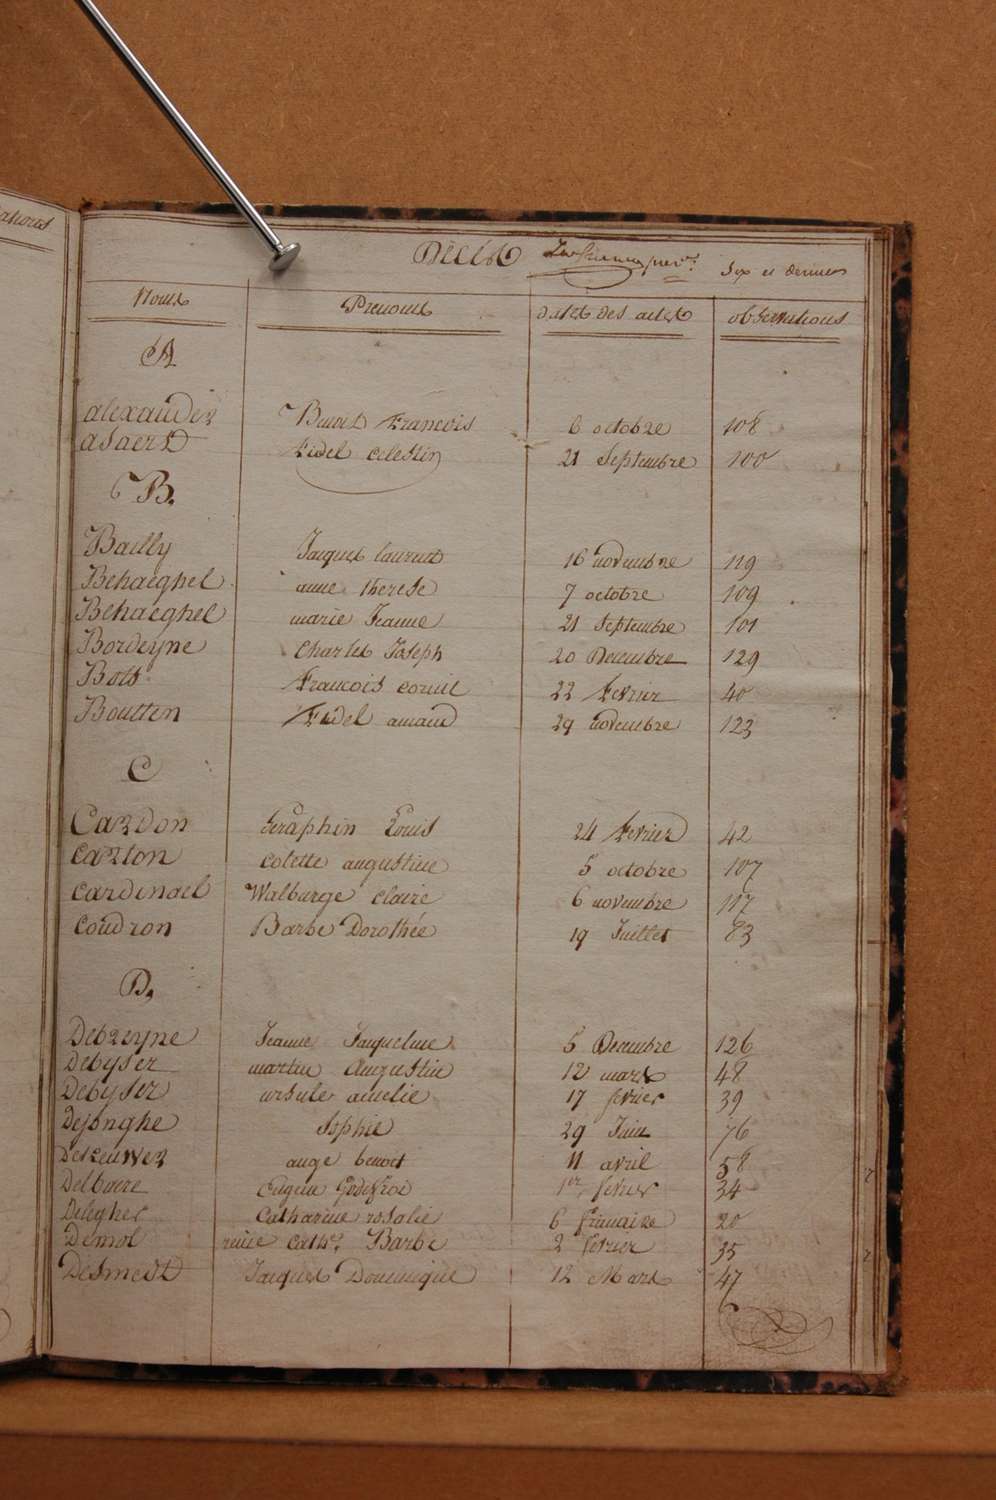 Décès Six et dernier
Noms Prenoms dates des actes observations
A
alexander Benoit François 6 octobre 108
asaert Fidel celestin 21 Septembre 100
B.
Bailly Jacques laurent 16 novembre 119
Behaeghel anne therese 7 octobre 109
Behaeghel marie Jeanne 21 Septembre 101
Bordeyne Charles Joseph 20 Decembre 129
Bols François cornil 22 Fevrier 40
Boutten Fidel amand 29 novembre 123
C
Cardon Seraphin Louis 24 Fevrier 42
Carlon colette augustine 5 octobre 107
cardinael Walburge claire 6 novembre 117
coudron Barbe Dorothée 19 Juillet 83
D.
Debreyne Jeanne Jaqueline 5 Decembre 126
Debyser martin Augustin 12 mars 48
Debyser ursule amelie 17 fevrier 39
Dejonghe Sophie 29 Juin 76
Dekeuwer ange benoit 11 avril 58
Delbaere Eugene Godeffroi 1er fevrier 34
Delegher catharine rosalie 6 frimaire 20
Demol reine cathe. Barbe 2 fevrier 35
Desmedt Jacques Dominique 12 Mars 47